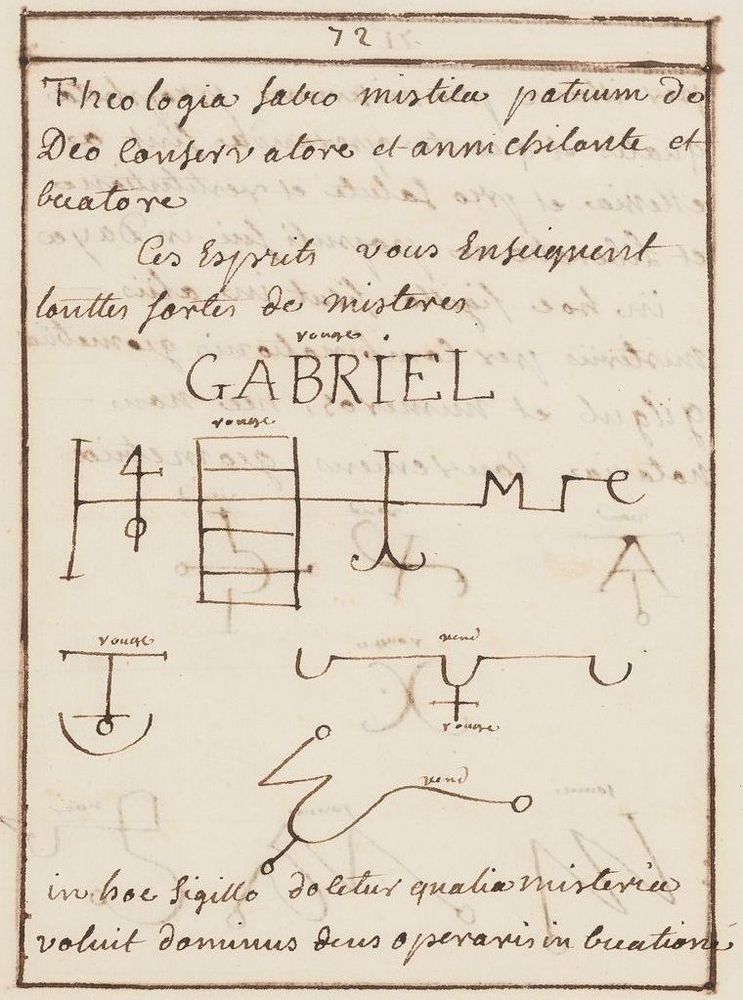 72
Theologia sabro mistica patrum de
Deo Conservatore et annichilante et
bucatore
Ces Esprits vous Enseignent
touttes sortes de misteres
rouge
GABRIEL
rouge
rouge
verd
rouge
verd
in hoc sigillo docetur qualia misteria
voluit dominus deus operaris in bucationé